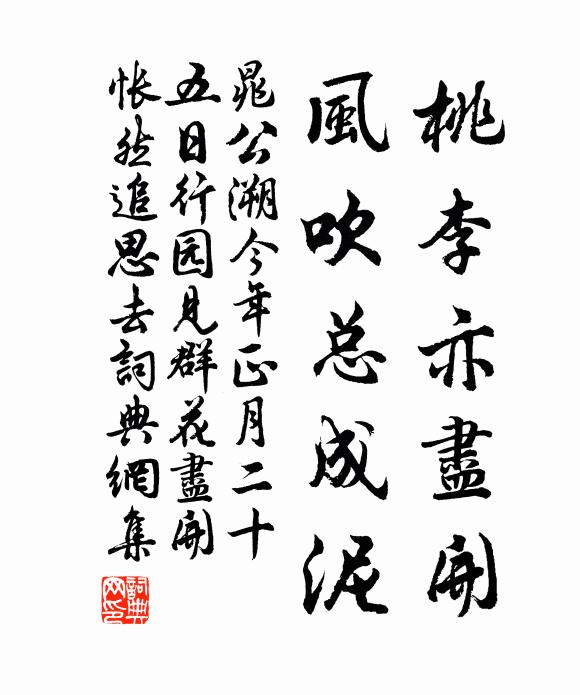 桃李亦盡開
風吹总成泥
晁公溯今年正月二十
五日行园見群花盡開
悵然追思去詞典網集
詞典网印